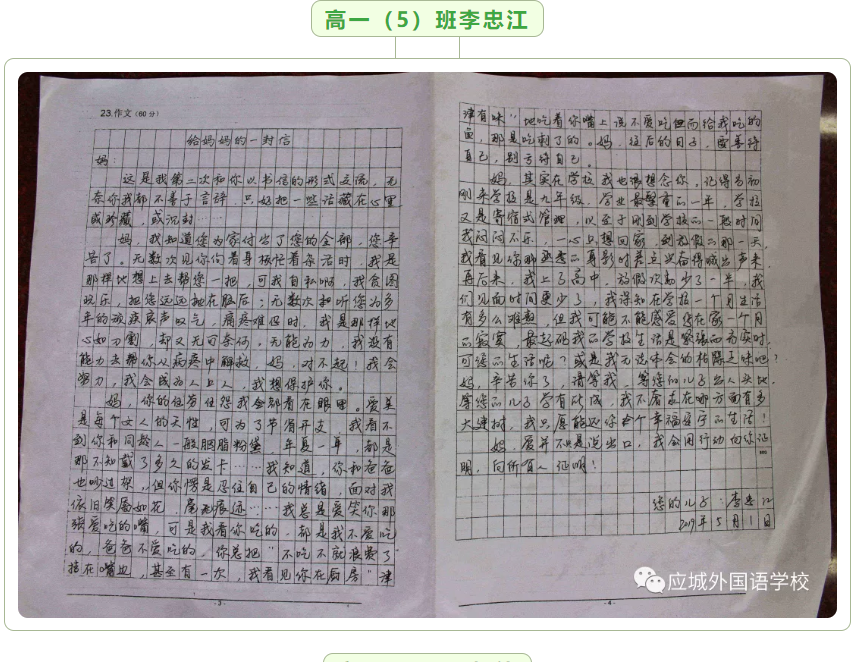 高一（5）班李忠江
23.作文（60分）
给妈妈的一封信
妈：
这是我第二次和你以书信的形式交流，无
奈你我都不善于言辞，只好把一些话藏在心里
或珍藏，或沉封……
妈，我知道您为家付出了您的全部，您辛
苦了。无数次见你佝着身板忙着杂活时，我是
那样地想上去帮您一把，可我自私啊，我贪图
玩乐，把您远远抛在脑后；无数次和听您为多
年的顽疾哀声叹气，痛疼难但时，我是那样地
心如刀割，却又无可奈何。无能为力，我没有
能力去帮你从病疼中解救，妈，对不起！我会
努力，我会成为人上人，我想保护你。
妈，你的任劳任怨我全部看在眼里。爱美
是每个女人的天性，可为了节省开支，我看不
到你和同龄人一般胭脂粉黛，年复一年，都是
那不知戴了多久的发卡……我知道，你和爸爸
也吵过架，但你愣是忍住自己的情绪，面对我
依旧笑唇如花，
我总是爱笑你那
强爱吃的嘴，可是我看你吃的，都是我不爱吃
的，爸爸不爱吃的，你总把“不吃不就浪费了”
挂在嘴边，甚至有一次，我看见你在厨房“津
津有味”地吃着你嘴上说不爱吃但而给我吃的
鱼，那是吃剩了的。妈，往后的日子，要善待
自己，别亏待自己。
妈，其实在学校我也很想念你，记得当初
刚来学校是九年级，学业最繁重的一年，学校
又是寄宿式管理，以至于刚到学校的一段时间
我闷闷不乐，一心只想回家，到放假的那一天，
我看见你那熟悉的身影时差点兴奋得喊出声来，
再后来，我上了高中，放假次数少了一半，我
们见面时间更少了，我深知在学校一个月生活
有多么难熬，但我可能不能感受您在家一个月
的寂寞，最起码我的学校生活是紧张而充实的，
可您的生活呢？或是我无法体会的枯燥乏味吧？
妈，辛苦你了，请等我，等您的儿子出人头地，
等您的儿子学有所成，我不届求在哪方面有多
大建树，我只愿能还你一个幸福安宁的生活！
妈，爱并不只是说出口，我会用行动向你证
明，向所有人证明！
您的儿子：李忠江
2019年5月1日
-3-
-4-
应城外国语学校